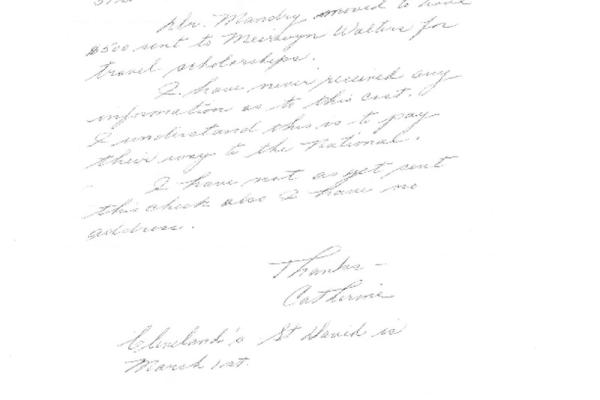 Mr. Mandry moved to have
$500 sent to Meirwyn Walters for
travel scholarships.
I have never received any
information as to this cost.
I understand this is to pay
their way to the National.
I have not as yet sent
this check also I have no
address.
Thanks -
Catherine
Cleveland's St David is
March 1st.